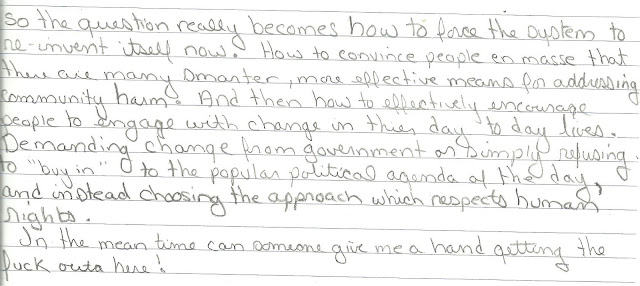 so the question really becomes how to force the system to
re-invent itself now. How to convince people en masse that
there are many smarter, more effective means for addressing
community harm. And then how to effectively encourage
people to engage with change in their day to day lives.
Demanding change from government or simply refusing
to "buy in" to the popular political agenda of the day,
and instead choosing the approach which respects human
rights.
In the mean time can someone give me a hand getting the
fuck outa here!